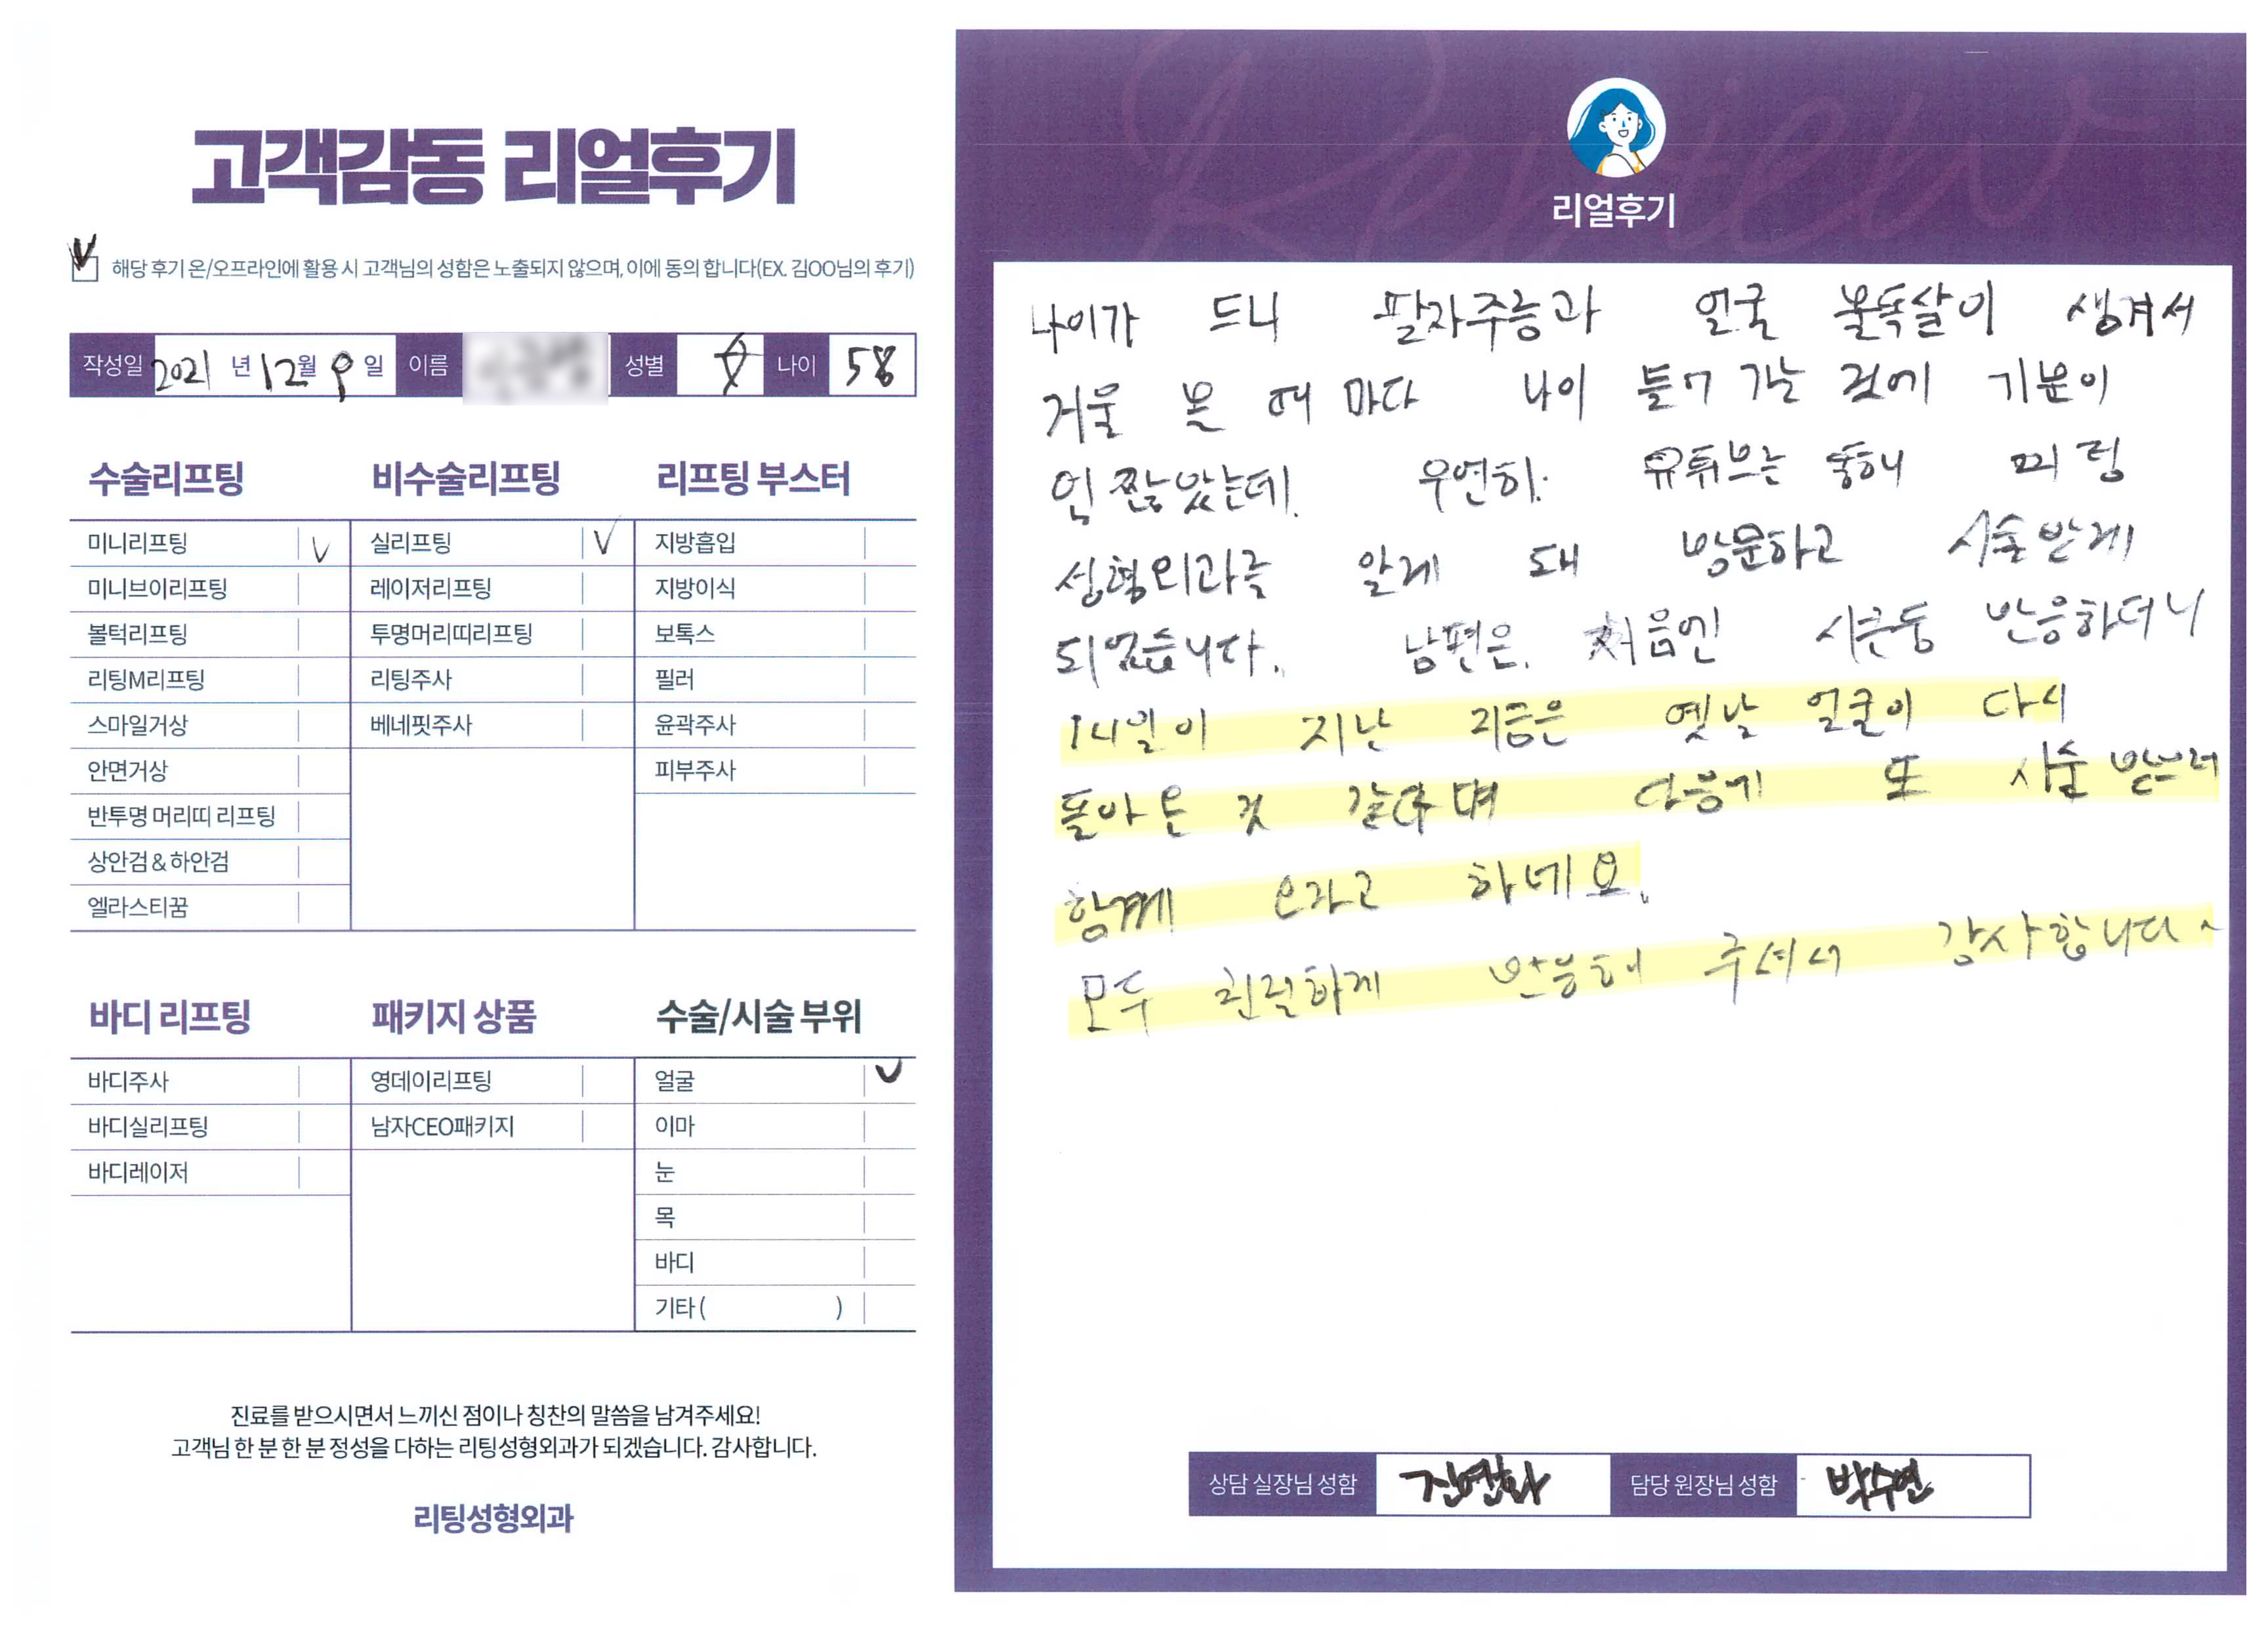 고객감동 리얼후기
해당 후기 온/오프라인에 활용 시 고객님의 성함은 노출되지 않으며, 이에 동의 합니다(EX. 김OO님의 후기)
작성일 2021 년 12 월 9 일 이름 성별 女 나이 58
수술리프팅
미니리프팅
미니브이리프팅
볼턱리프팅
리팅M리프팅
스마일거상
안면거상
반투명 머리띠 리프팅
상안검 & 하안검
엘라스티꿈
비수술리프팅
실리프팅
레이저리프팅
투명머리띠리프팅
리팅주사
베네핏주사
리프팅 부스터
지방흡입
지방이식
보톡스
필러
윤곽주사
피부주사
바디 리프팅
바디주사
바디실리프팅
바디레이저
패키지 상품
영데이리프팅
남자CEO패키지
수술/시술 부위
얼굴
이마
눈
목
바디
기타 ( )
진료를 받으시면서 느끼신 점이나 칭찬의 말씀을 남겨주세요!
고객님 한 분 한 분 정성을 다하는 리팅성형외과가 되겠습니다. 감사합니다.
리팅성형외과
Review
리얼후기
나이가 드니 팔자주름과 얼굴 불독살이 생겨서
거울 볼 때 마다 나이 들어 가는 것에 기분이
언짢았는데. 우연히. 유튜브는 통해
성형외과를 알게 돼 방문하고 시술받게
되었습니다. 남편은. 처음엔 시큰둥 반응하더니
14일이 지난 지금은 옛날 얼굴이 다시
돌아온 것 같다며 다음에 또 시술 받으러
함께 오라고 하네요.
모두 친절하게 반응해 주셔서 감사합니다~
상담 실장님 성함 담당 원장님 성함 박수연